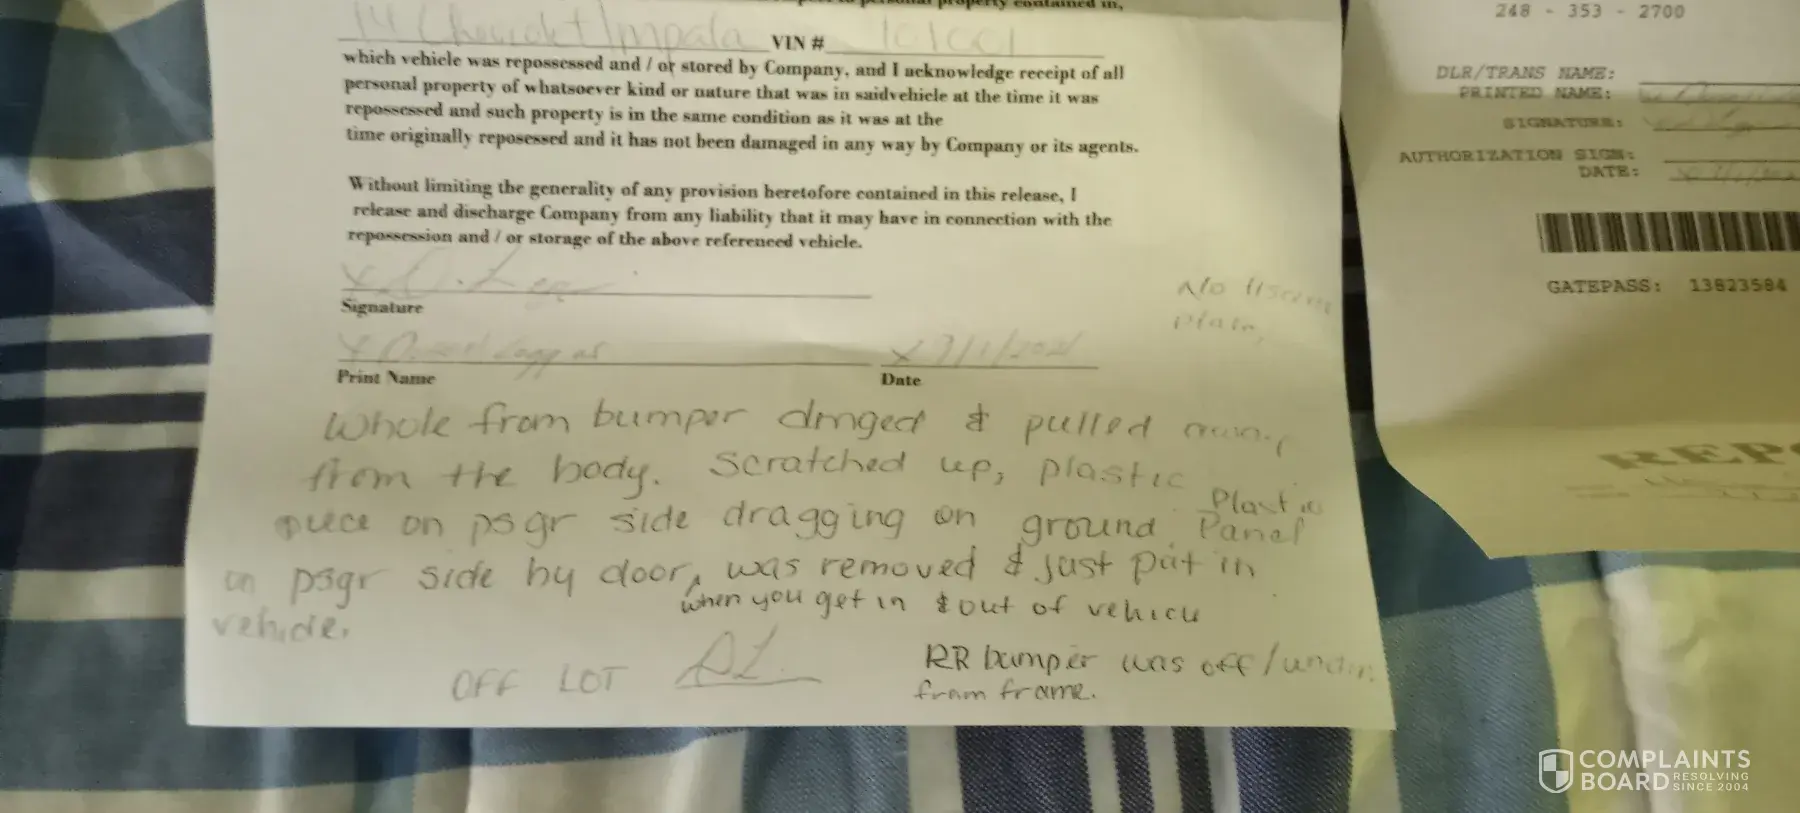 personal property contained in,
14 Chevrolet Impala VIN # 101CC1
which vehicle was repossessed and / or stored by Company, and I acknowledge receipt of all
personal property of whatsoever kind or nature that was in saidvehicle at the time it was
repossessed and such property is in the same condition as it was at the
time originally reposessed and it has not been damaged in any way by Company or its agents.
Without limiting the generality of any provision heretofore contained in this release, I
release and discharge Company from any liability that it may have in connection with the
repossession and / or storage of the above referenced vehicle.
X
Signature
N/O license
Plate,
X
X 7/1/2021
Print Name
Date
Whole from bumper dmged & pulled away
from the body. Scratched up, plastic
piece on psgr side dragging on ground. Plastic Panel
on psgr side by door, when you get in & out of vehicle was removed & just put in
vehicle.
OFF LOT
RR bumper was off/under
from frame.
248 - 353 - 2700
DLR/TRANS NAME:
PRINTED NAME:
SIGNATURE:
AUTHORIZATION SIGN:
DATE:
GATEPASS: 13823584
REPO
COMPLAINTS
BOARD RESOLVING
SINCE 2004